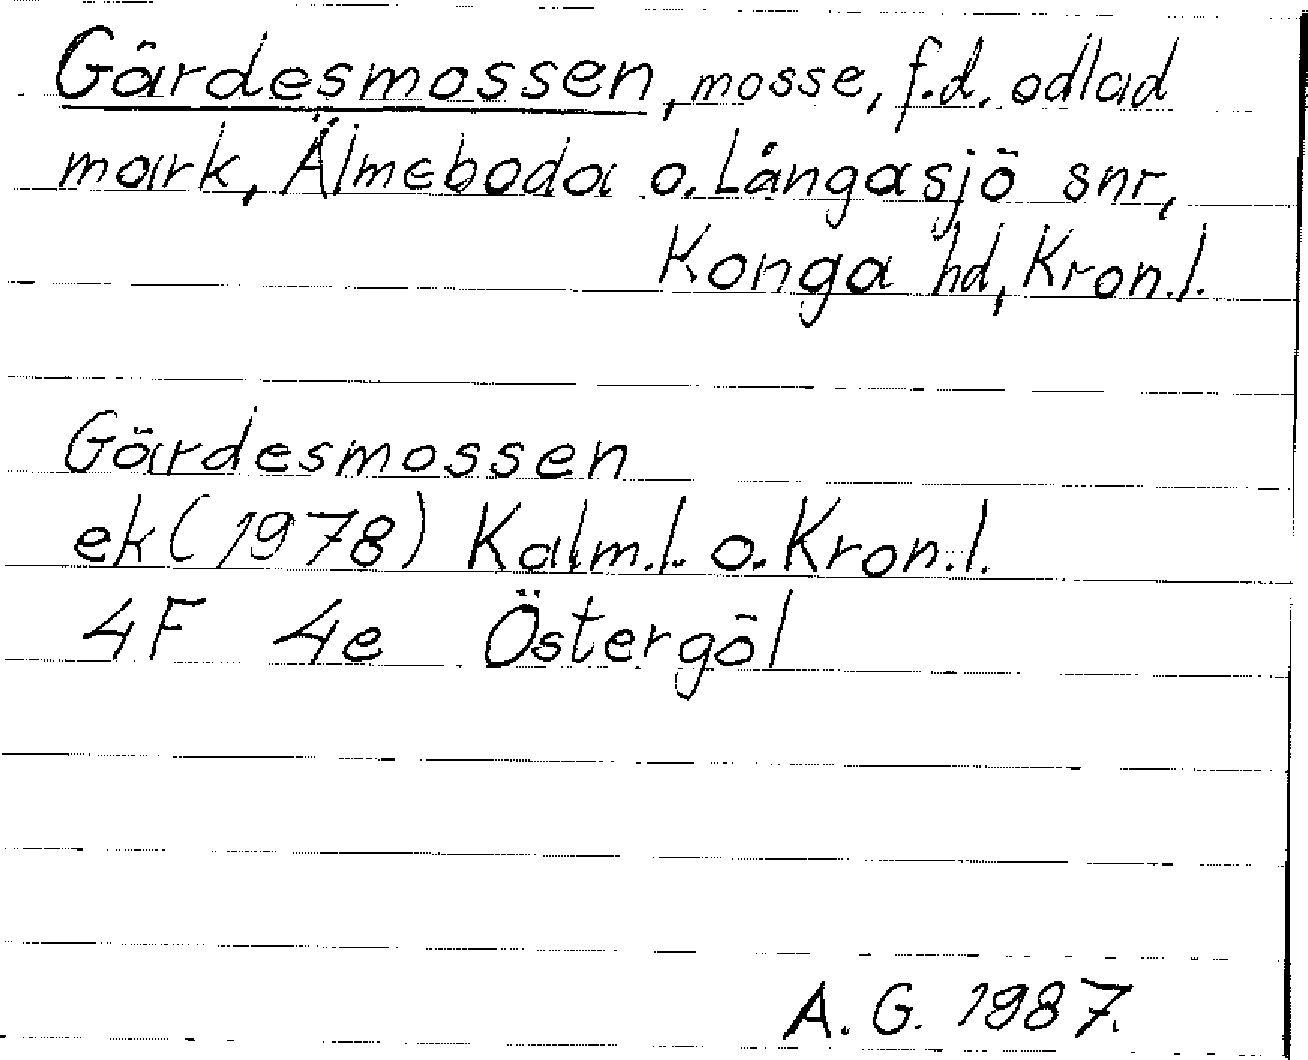 Gärdesmossen, mosse, f.d. odlad
mark, Älmeboda o. Långasjö snr,
Konga hd, Kron.l.
Gärdesmossen
ek (1978) Kalm.l. o. Kron.l.
4F 4e Östergöl
A. G. 1987.